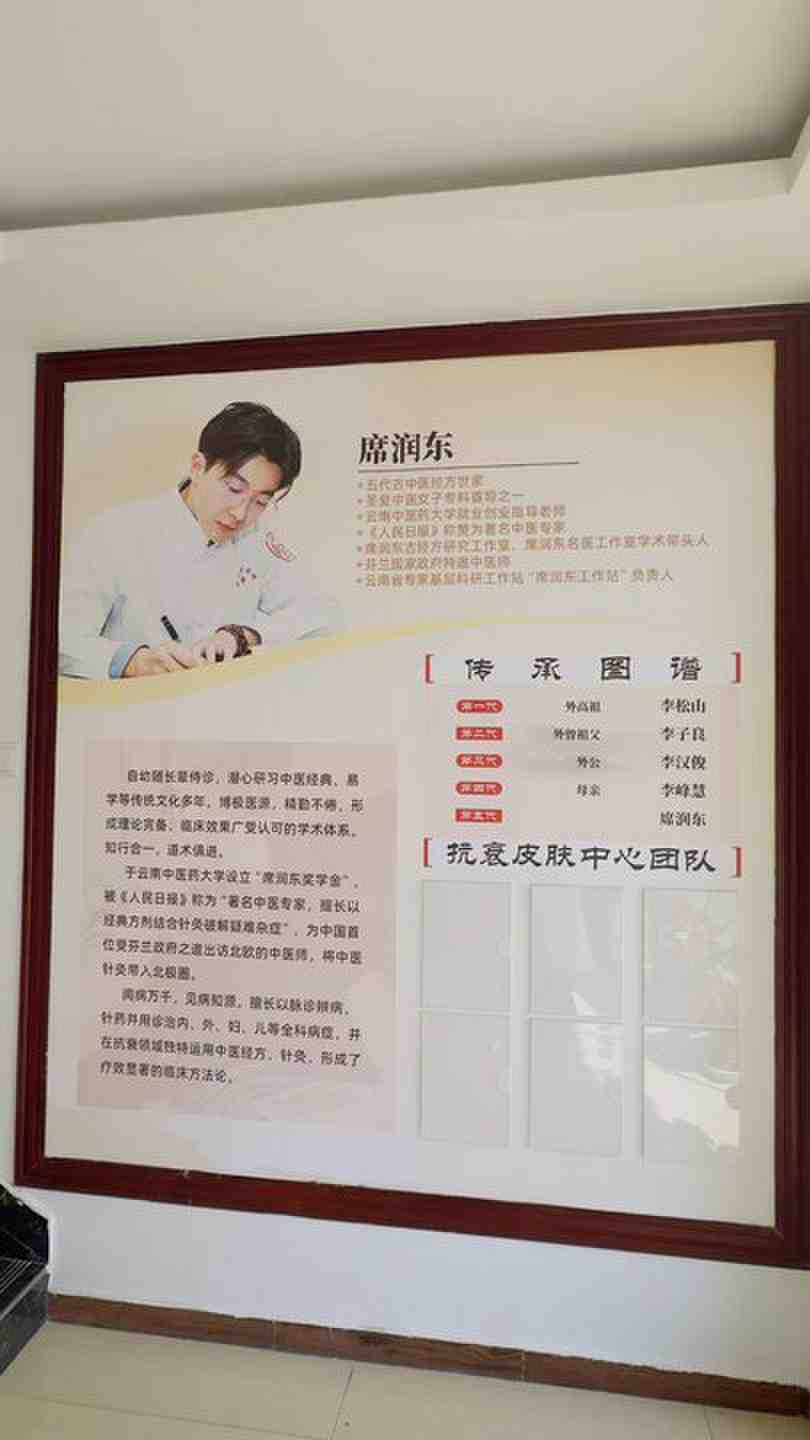 席润东
•五代古中医经方世家
•圣爱中医女子专科督导之一
•云南中医药大学就业创业指导老师
•《人民日报》称赞为著名中医专家
•席润东古经方研究工作室、席润东名医工作室学术带头人
•芬兰国家政府特邀中医师
•云南省专家基层科研工作站“席润东工作站”负责人
[传承图谱]
第一代 外高祖 李松山
第二代 外曾祖父 李子良
第三代 外公 李汉俊
第四代 母亲 李峰慧
第五代 席润东
[抗衰皮肤中心团队]
自幼随长辈侍诊，潜心研习中医经典、易
学等传统文化多年，博极医源，精勤不倦，形
成理论完备，临床效果广受认可的学术体系。
知行合一，道术俱进。
于云南中医药大学设立“席润东奖学金”，
被《人民日报》称为“著名中医专家，擅长以
经典方剂结合针灸破解疑难杂症”，为中国首
位受芬兰政府之邀出访北欧的中医师，将中医
针灸带入北极圈。
阅病万千，见病知源，擅长以脉诊辨病，
针药并用诊治内、外、妇、儿等全科病症，并
在抗衰领域独特运用中医经方、针灸，形成了
疗效显著的临床方法论。